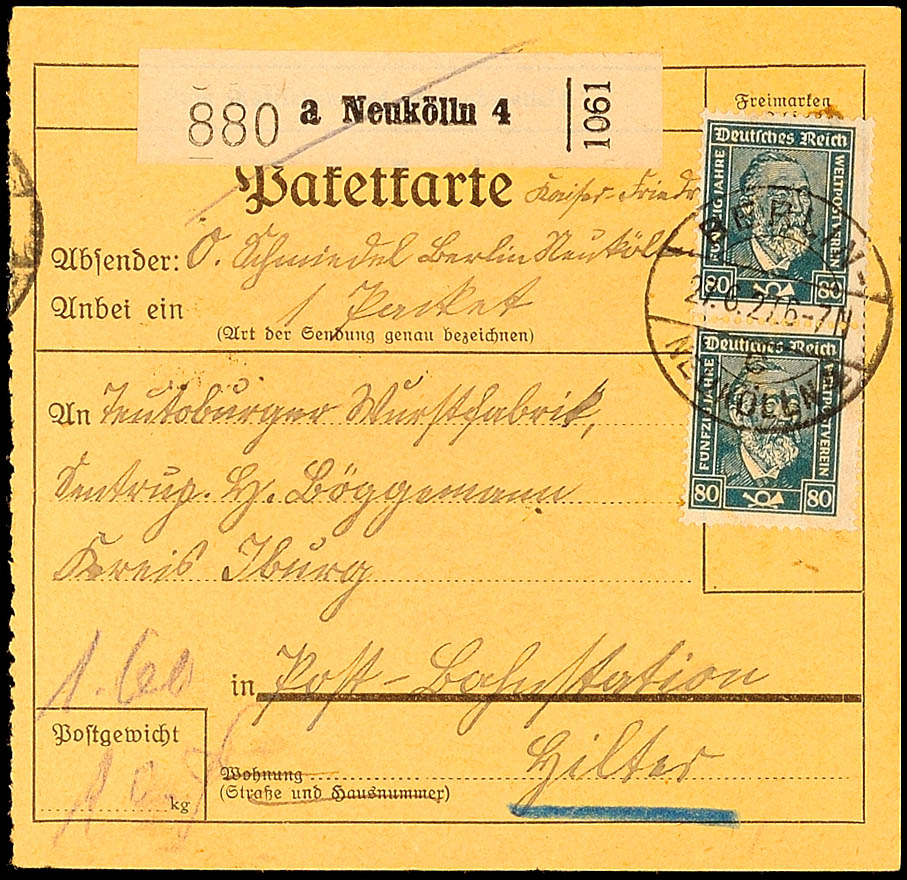 880 a Neukölln 4 1061
Freimarken
Paketkarte Kaiser-Friedr
Absender: O. Schmiedel Berlin Neuköll
Anbei ein 1 Packet
(Art der Sendung genau bezeichnen)
Deutsches Reich
FÜNFZIG JAHRE WELTPOSTVEREIN
80 80
BERLIN-
27.6.27.6-7N
NEUKÖLLN
Deutsches Reich
FÜNFZIG JAHRE WELTPOSTVEREIN
80 80
An Teutoburger Wurstfabrik,
Sentrup. H. Böggemann
Kreis Iburg
1.60
in Post-Bahnstation
Postgewicht
kg
Wohnung Hilter
(Straße und Hausnummer)